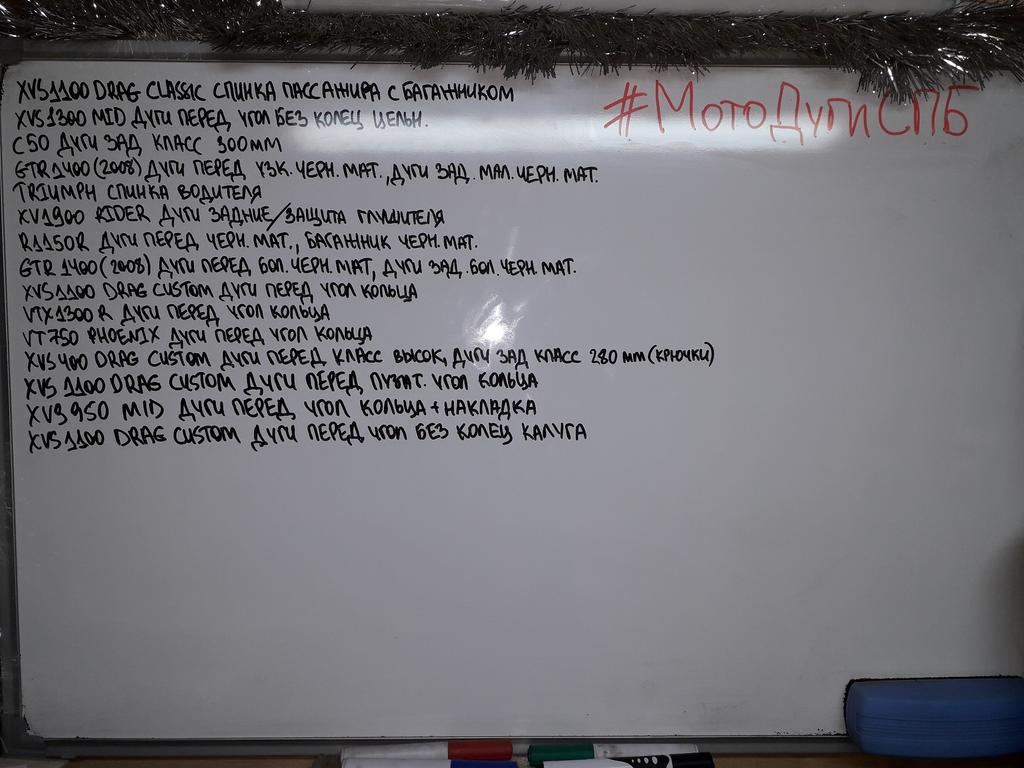 XVS1100 DRAG CLASSIC СПИНКА ПАССАЖИРА С БАГАЖНИКОМ
#МотоДугиСПБ
XVS1300 MID ДУГИ ПЕРЕД УГОЛ БЕЗ КОЛЕЦ ЦЕЛЬН.
C50 ДУГИ ЗАД КЛАСС 300ММ
GTR1400(2008) ДУГИ ПЕРЕД УЗК. ЧЕРН. МАТ., ДУГИ ЗАД. МАЛ. ЧЕРН. МАТ.
TRIUMPH СПИНКА ВОДИТЕЛЯ
XV1900 RIDER ДУГИ ЗАДНИЕ/ЗАЩИТА ГЛУШИТЕЛЯ
R1150R ДУГИ ПЕРЕД ЧЕРН. МАТ., БАГАЖНИК ЧЕРН. МАТ.
GTR 1400(2008) ДУГИ ПЕРЕД БОЛ. ЧЕРН. МАТ, ДУГИ ЗАД. БОЛ. ЧЕРН. МАТ.
XVS1100 DRAG CUSTOM ДУГИ ПЕРЕД УГОЛ КОЛЬЦА
VTX1300 R ДУГИ ПЕРЕД УГОЛ КОЛЬЦА
VT750 PHOENIX ДУГИ ПЕРЕД УГОЛ КОЛЬЦА
XVS400 DRAG CUSTOM ДУГИ ПЕРЕД КЛАСС ВЫСОК, ДУГИ ЗАД КЛАСС 280 мм (КРЮЧКИ)
XVS 1100 DRAG CUSTOM ДУГИ ПЕРЕД ПУЗАТ. УГОЛ КОЛЬЦА
XVS950 MID ДУГИ ПЕРЕД УГОЛ КОЛЬЦА + НАКЛАДКА
XVS1100 DRAG CUSTOM ДУГИ ПЕРЕД УГОЛ БЕЗ КОЛЕЦ КАЛУГА